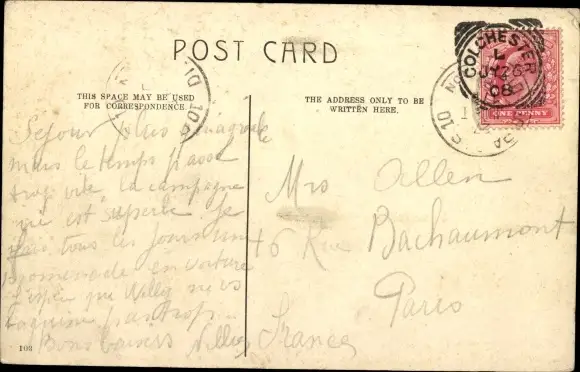 POST CARD
THIS SPACE MAY BE USED
FOR CORRESPONDENCE.
THE ADDRESS ONLY TO BE
WRITTEN HERE.
COLCHESTER
JY 26
08
ONE PENNY
Séjour plus
mais le temps passe
vite la campagne
est superbe je
fais tous les jours une
promenade en voiture
que Willy ne vs
taquine pas trop
Bons baisers Nelly
Mrs Allen
46 Rue Bachaumont
Paris
France
103